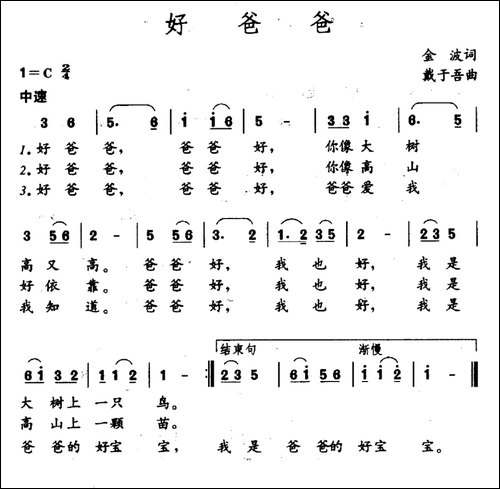 好 爸 爸
金 波词
1=C 2/4
戴于吾曲
中速
3 6 | 5. 6 | i i6 | 5 - | 3 3 i | 6. 5 |
1.好 爸 爸, 爸 爸 好, 你像大 树
2.好 爸 爸, 爸 爸 好, 你像高 山
3.好 爸 爸, 爸 爸 好, 爸爸爱 我
3 56 | 2 - | 5 56 | 3. 2 | 1.2 35 | 2 - | 235 |
高 又 高。 爸 爸 好, 我 也 好, 我 是
好 依 靠。 爸 爸 好, 我 也 好, 我 是
我 知 道。 爸 爸 好, 我 也 好, 我 是
结束句 渐慢
6i 32 | 112 | 1 - :‖ 235 | 6i 56 | i i2 | i - ‖
大 树上 一只 鸟。
高 山上 一颗 苗。
爸 爸的 好宝 宝, 我 是 爸 爸的 好宝 宝。